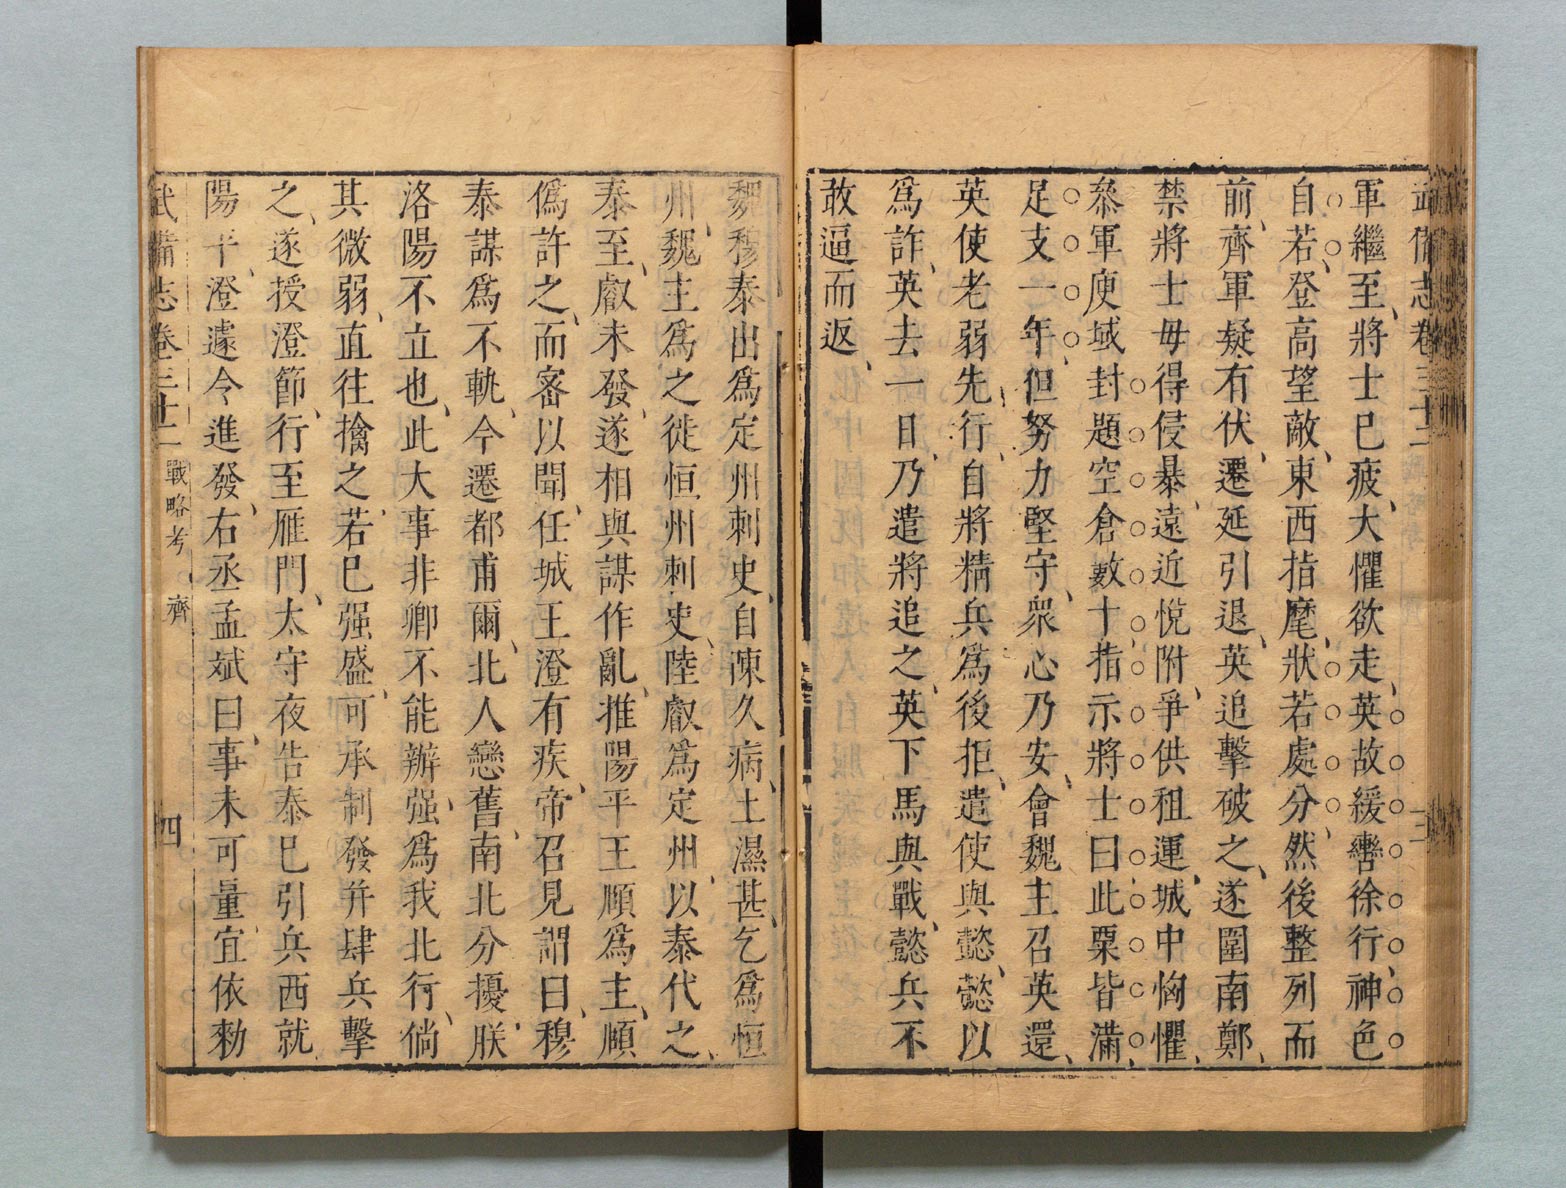 武備志卷三十二
軍繼至、將士已疲、大懼欲走、英故緩轡徐行、神色
自若、登高望敵、東西指麾、狀若處分、然後整列而
前、齊軍疑有伏、遷延引退、英追擊破之、遂圍南鄭、
禁將士毋得侵暴、遠近悅附、爭供租運、城中恟懼、
叅軍庾域封題空倉數十、指示將士曰、此粟皆滿、
足支一年、但努力堅守、衆心乃安、會魏主召英還、
英使老弱先行、自將精兵爲後拒、遣使與懿、懿以
爲詐、英去一日、乃遣將追之、英下馬與戰、懿兵不
敢逼而返、
魏穆泰出爲定州刺史、自陳久病、土濕甚、乞爲恒
州、魏主爲之徙恒州刺史、陸叡爲定州、以泰代之、
泰至、叡未發、遂相與謀作亂、推陽平王頤爲主、頤
僞許之、而密以聞、任城王澄有疾、帝召見謂曰、穆
泰謀爲不軌、今遷都甫爾、北人戀舊、南北分擾、朕
洛陽不立也、此大事非卿不能辦、强爲我北行、倘
其微弱、直往擒之、若已强盛、可承制發幷肆兵擊
之、遂授澄節、行至雁門、太守夜告泰已引兵西就
陽平、澄遽令進發、右丞孟斌曰、事未可量、宜依勅
武備志卷三十二 戰略考 齊 四